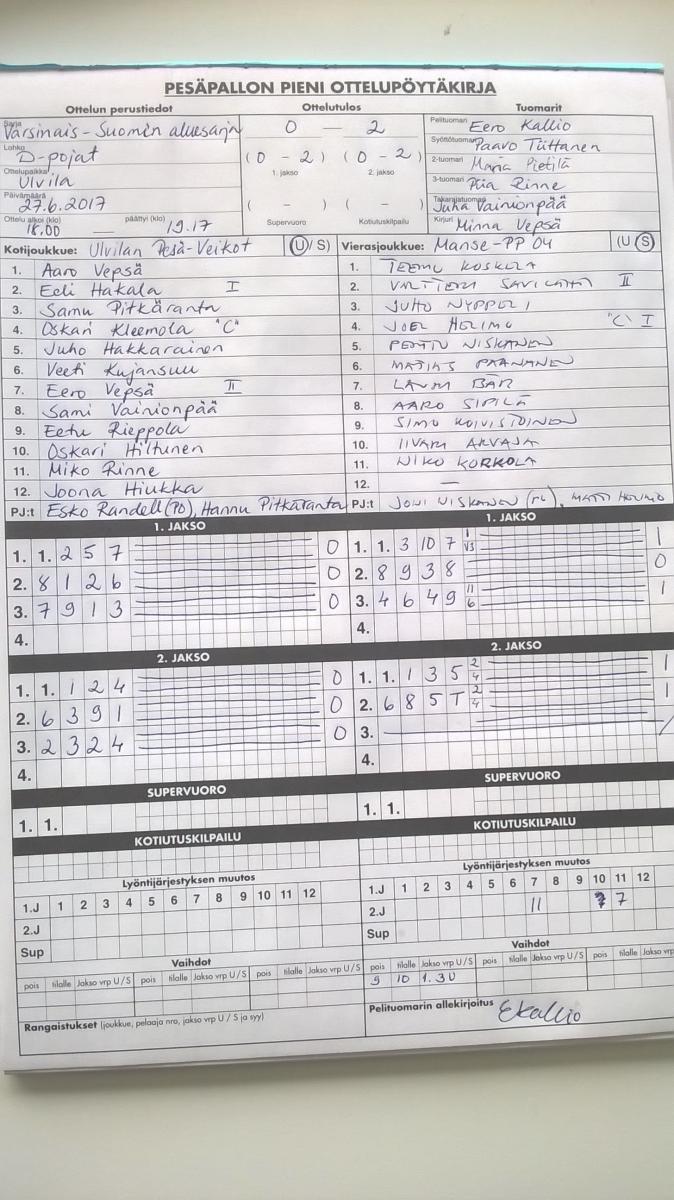 PESÄPALLON PIENI OTTELUPÖYTÄKIRJA
Ottelun perustiedot Ottelutulos Tuomarit
Sarja Varsinais-Suomen aluesarja 0 — 2 Pelituomari Eero Kallio
Lohko D-pojat (0 - 2) (0 - 2) Syöttötuomari Paavo Tiittanen
Ottelupaikka Ulvila 1. jakso 2. jakso 2-tuomari Maria Pietilä
Päivämäärä 27.6.2017 ( - ) ( - ) 3-tuomari Piia Rinne
Takarajatuomari Juha Vainionpää
Ottelu alkoi (klo) 18.00 — päättyi (klo) 19.17 Supervuoro Kotiutuskilpailu Kirjuri Minna Vepsä
Kotijoukkue: Ulvilan Pesä-Veikot (U/S) Vierasjoukkue: Manse-PP 04 (U S)
1. Aaro Vepsä 1. TEEMU KOSKELA
2. Eeli Hakala I 2. VALTTERI II
3. Samu Pitkäranta 3. JUHO NYPPELI
4. Oskari Kleemola "C" 4. JOEL HOLIMO "C" I
5. Juho Hakkarainen 5. PENTTU NISKANEN
6. Veeti Kujansuu 6. MATIAS PAANANEN
7. Eero Vepsä II 7. LAURI BÄR
8. Sami Vainionpää 8. AARO SIPILÄ
9. Eetu Rieppola 9. SIMO KOIVISTOINEN
10. Oskari Hiltunen 10. IIVARI ARVAJA
11. Miko Rinne 11. NIKO KORKOLA
12. Joona Hiukka 12. —
PJ:t Esko Randell (PJ), Hannu Pitkäranta PJ:t JONI NISKANEN (PL), MATTI HOLIMO
1. JAKSO 1. JAKSO
1. 1. 2 5 7 0 1. 1. 3 10 7 1 V3 1
2. 8 12 6 0 2. 8 9 3 8 0
3. 7 9 1 3 0 3. 4 6 4 9 11 6 1
4. 4.
2. JAKSO 2. JAKSO
1. 1. 1 2 4 0 1. 1. 1 3 5 2 4 1
2. 6 3 9 1 0 2. 6 8 5 T 2 4 1
3. 2 3 2 4 0 3. /
4. 4.
SUPERVUORO SUPERVUORO
1. 1. 1. 1.
KOTIUTUSKILPAILU KOTIUTUSKILPAILU
Lyöntijärjestyksen muutos Lyöntijärjestyksen muutos
1.J 1 2 3 4 5 6 7 8 9 10 11 12 1.J 1 2 3 4 5 6 7 8 9 10 11 12
2.J 2.J 11 7
Sup Sup
Vaihdot Vaihdot
pois tilalle Jakso vrp U/S pois tilalle Jakso vrp U/S pois tilalle Jakso vrp U/S pois tilalle Jakso vrp U/S pois tilalle Jakso vrp U/S pois tilalle Jakso vrp
9 10 1.3U
Rangaistukset (joukkue, pelaaja nro, jakso vrp U / S ja syy) Pelituomarin allekirjoitus EKallio